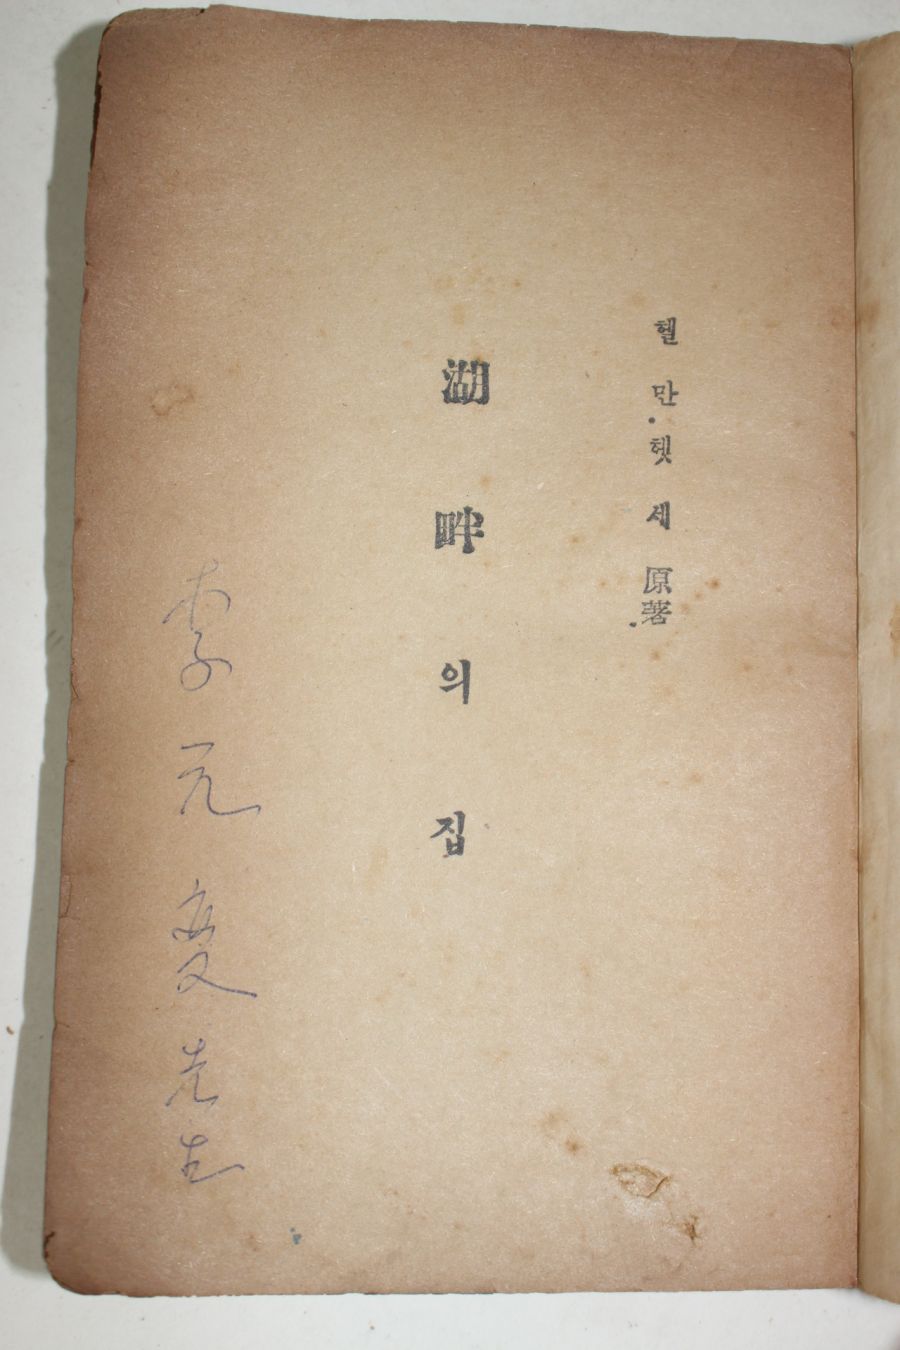 헬만·헷세 原著.
湖畔의집
李元夏先生